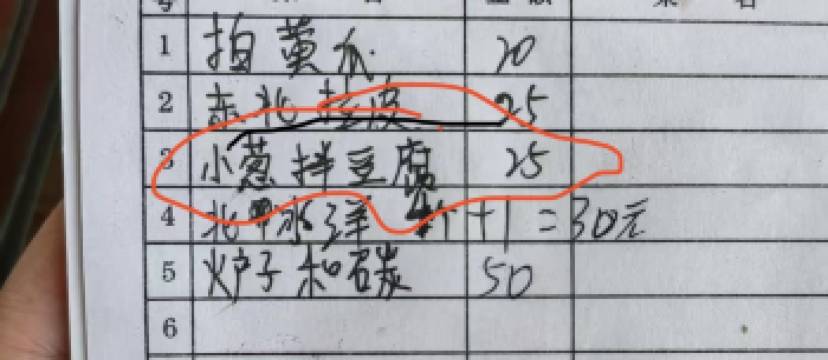 1 拍黄瓜 20
2 东北拉皮 25
3 小葱拌豆腐 25
4 北冰洋 +1 =30元
5 炉子和碳 50
6